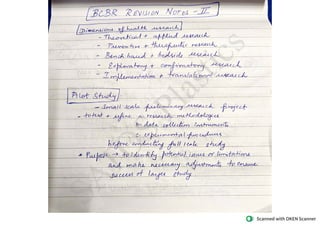 BCBR REVISION NOTES - II
Dimensions of health research
- Theoretical + applied research
- Preventive + therapeutic research
- Bench based + bedside research
- Exploratory + confirmatory research
- Implementation + translational research
Pilot Study
- Small scale preliminary research project
- to test + refine a. research methodologies
b. data collection instruments
c. experimental procedures
before conducting full scale study
* Purpose → to identify potential issues or limitations
and make necessary adjustments to ensure
success of larger study.
Scanned with OKEN Scanner